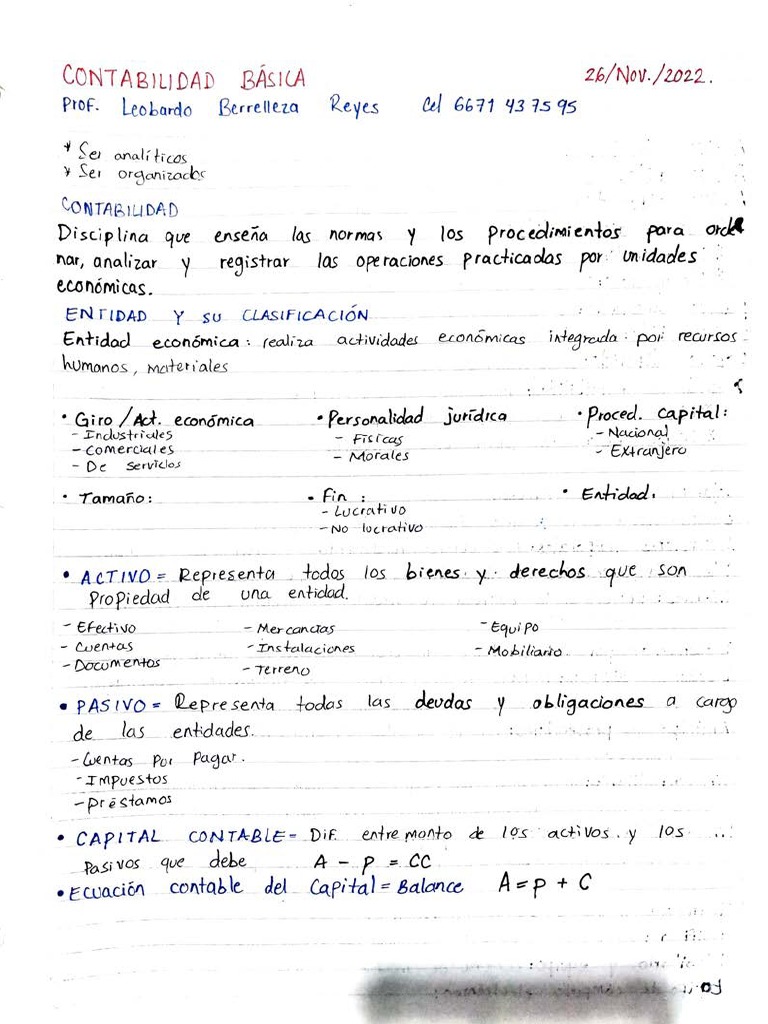 CONTABILIDAD BÁSICA 26/Nov./2022.
Prof. Leobardo Berrelleza Reyes Cel 6671 43 75 95
* Ser analíticos
* Ser organizados
CONTABILIDAD
Disciplina que enseña las normas y los procedimientos para orde
nar, analizar y registrar las operaciones practicadas por unidades
económicas.
ENTIDAD Y SU CLASIFICACIÓN
Entidad económica: realiza actividades económicas integrada por recursos
humanos, materiales
• Giro / Act. económica • Personalidad jurídica • Proced. capital:
- Industriales - Físicas - Nacional
- comerciales - Morales - Extranjero
- De servicios
• Tamaño: • Fin : • Entidad.
- Lucrativo
- No lucrativo
• ACTIVO = Representa todos los bienes y derechos que son
Propiedad de una entidad.
- Efectivo - Mercancías - Equipo
- Cuentas - Instalaciones - Mobiliario
- Documentos - Terreno
• PASIVO = Representa todas las deudas y obligaciones a cargo
de las entidades.
- Cuentas Por Pagar.
- Impuestos
- Préstamos
• CAPITAL CONTABLE = Dif. entre monto de los activos y los
Pasivos que debe A - P = CC
• Ecuación contable del Capital = Balance A = P + C